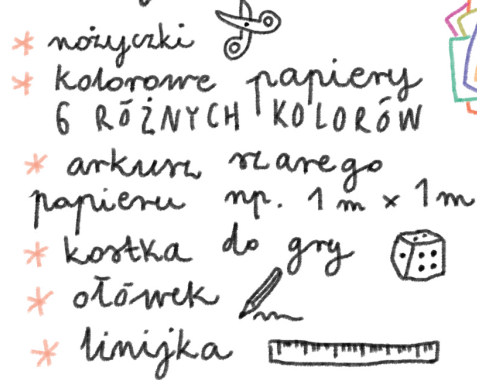 * nożyczki
* kolorowe papiery
6 RÓŻNYCH KOLORÓW
* arkusz szarego
papieru np. 1 m × 1 m
* kostka do gry
* ołówek
* linijka